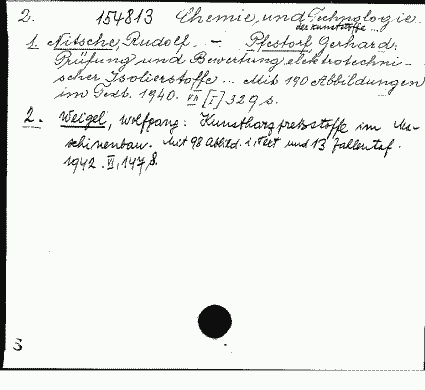 2. 154813 Chemie und Technologie
der Kunststoffe ...
1. Nitsche, Rudolf. – Pfestorf Gerhard:
Prüfung und Bewertung elektrotechni-
scher Isolierstoffe ... Mit 190 Abbildungen
im Text. 1940. VII [I] 329 s.
2. Weigel, Wolfgang: Kunstharzpreßstoffe im Ma-
schinenbau. Mit 98 Abbild. i. Text und 13 Zahlentaf.
1942. VI, 147 S.
S